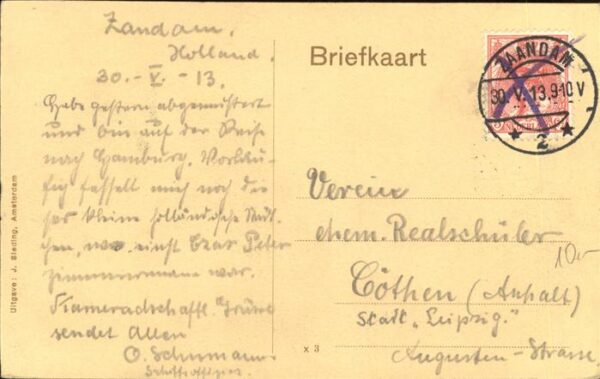 Zandam.
Holland.
30.-V.-13.
Habe gestern abgemustert
und bin auf der Reise
nach Hamburg. Vorläu-
fig fesselt mich noch die-
ses kleine holländische Städt-
chen, wo einst Czar Peter
Zimmermann war.
Kameradschaftl. Grüsse
sendet Allen
O. Schumann.
Schiffsoffizier.
Uitgave: J. Sleding, Amsterdam
Briefkaart
ZAANDAM
30.V.13.9-10V
2
Verein
ehem. Realschüler
Cöthen (Anhalt)
Stadt „Leipzig."
Augusten-Strasse
x 3